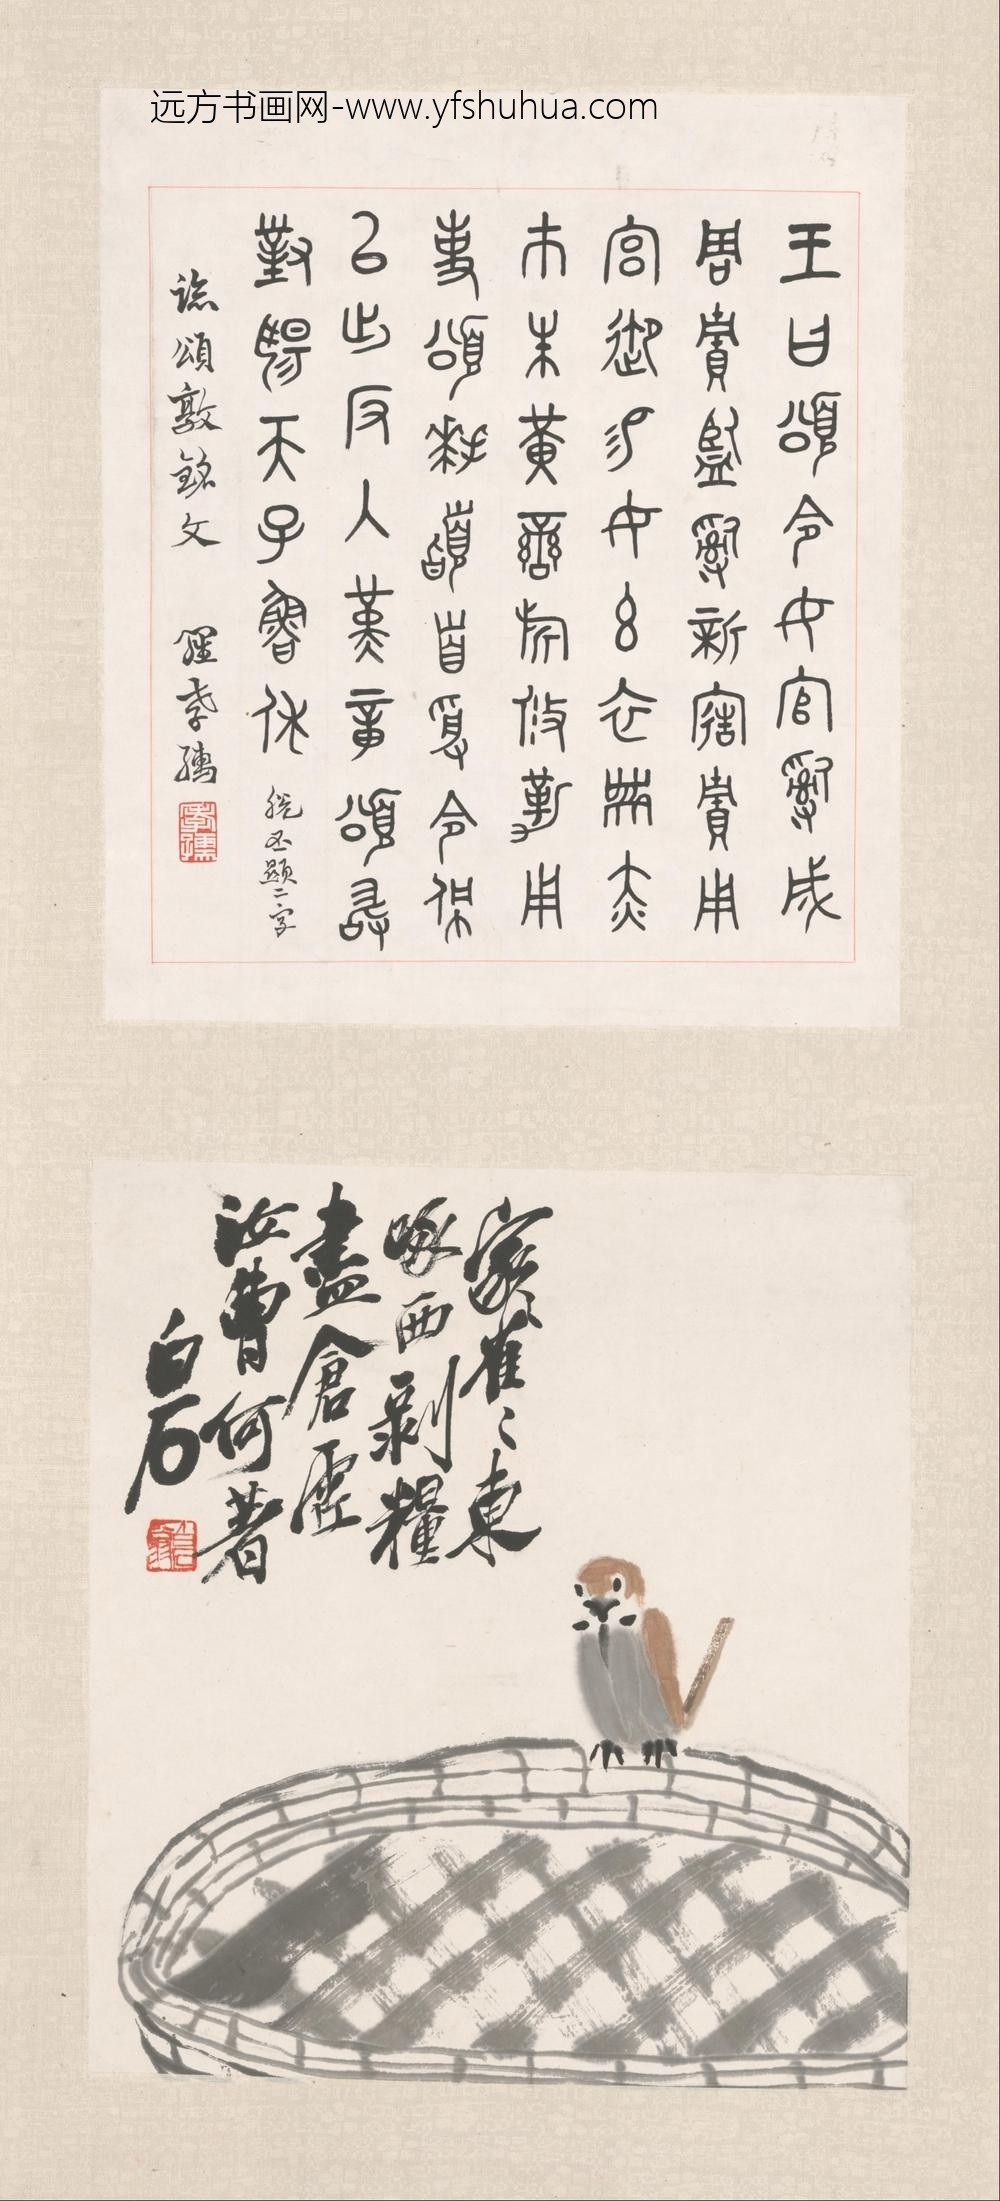 远方书画网-www.yfshuhua.com
王曰頌令女官𤔲成
周賈監𤔲新寤賈用
宮御易女玄衣黹赤
巿朱黃䜌旂攸勒用
事頌拜稽首受令佩
以出反入堇章頌敢
對揚天子魯休 脫丕顯二字
頌敦銘文
家雀〻東
啄西剝糧
盡倉虛
汝曹何著
白石